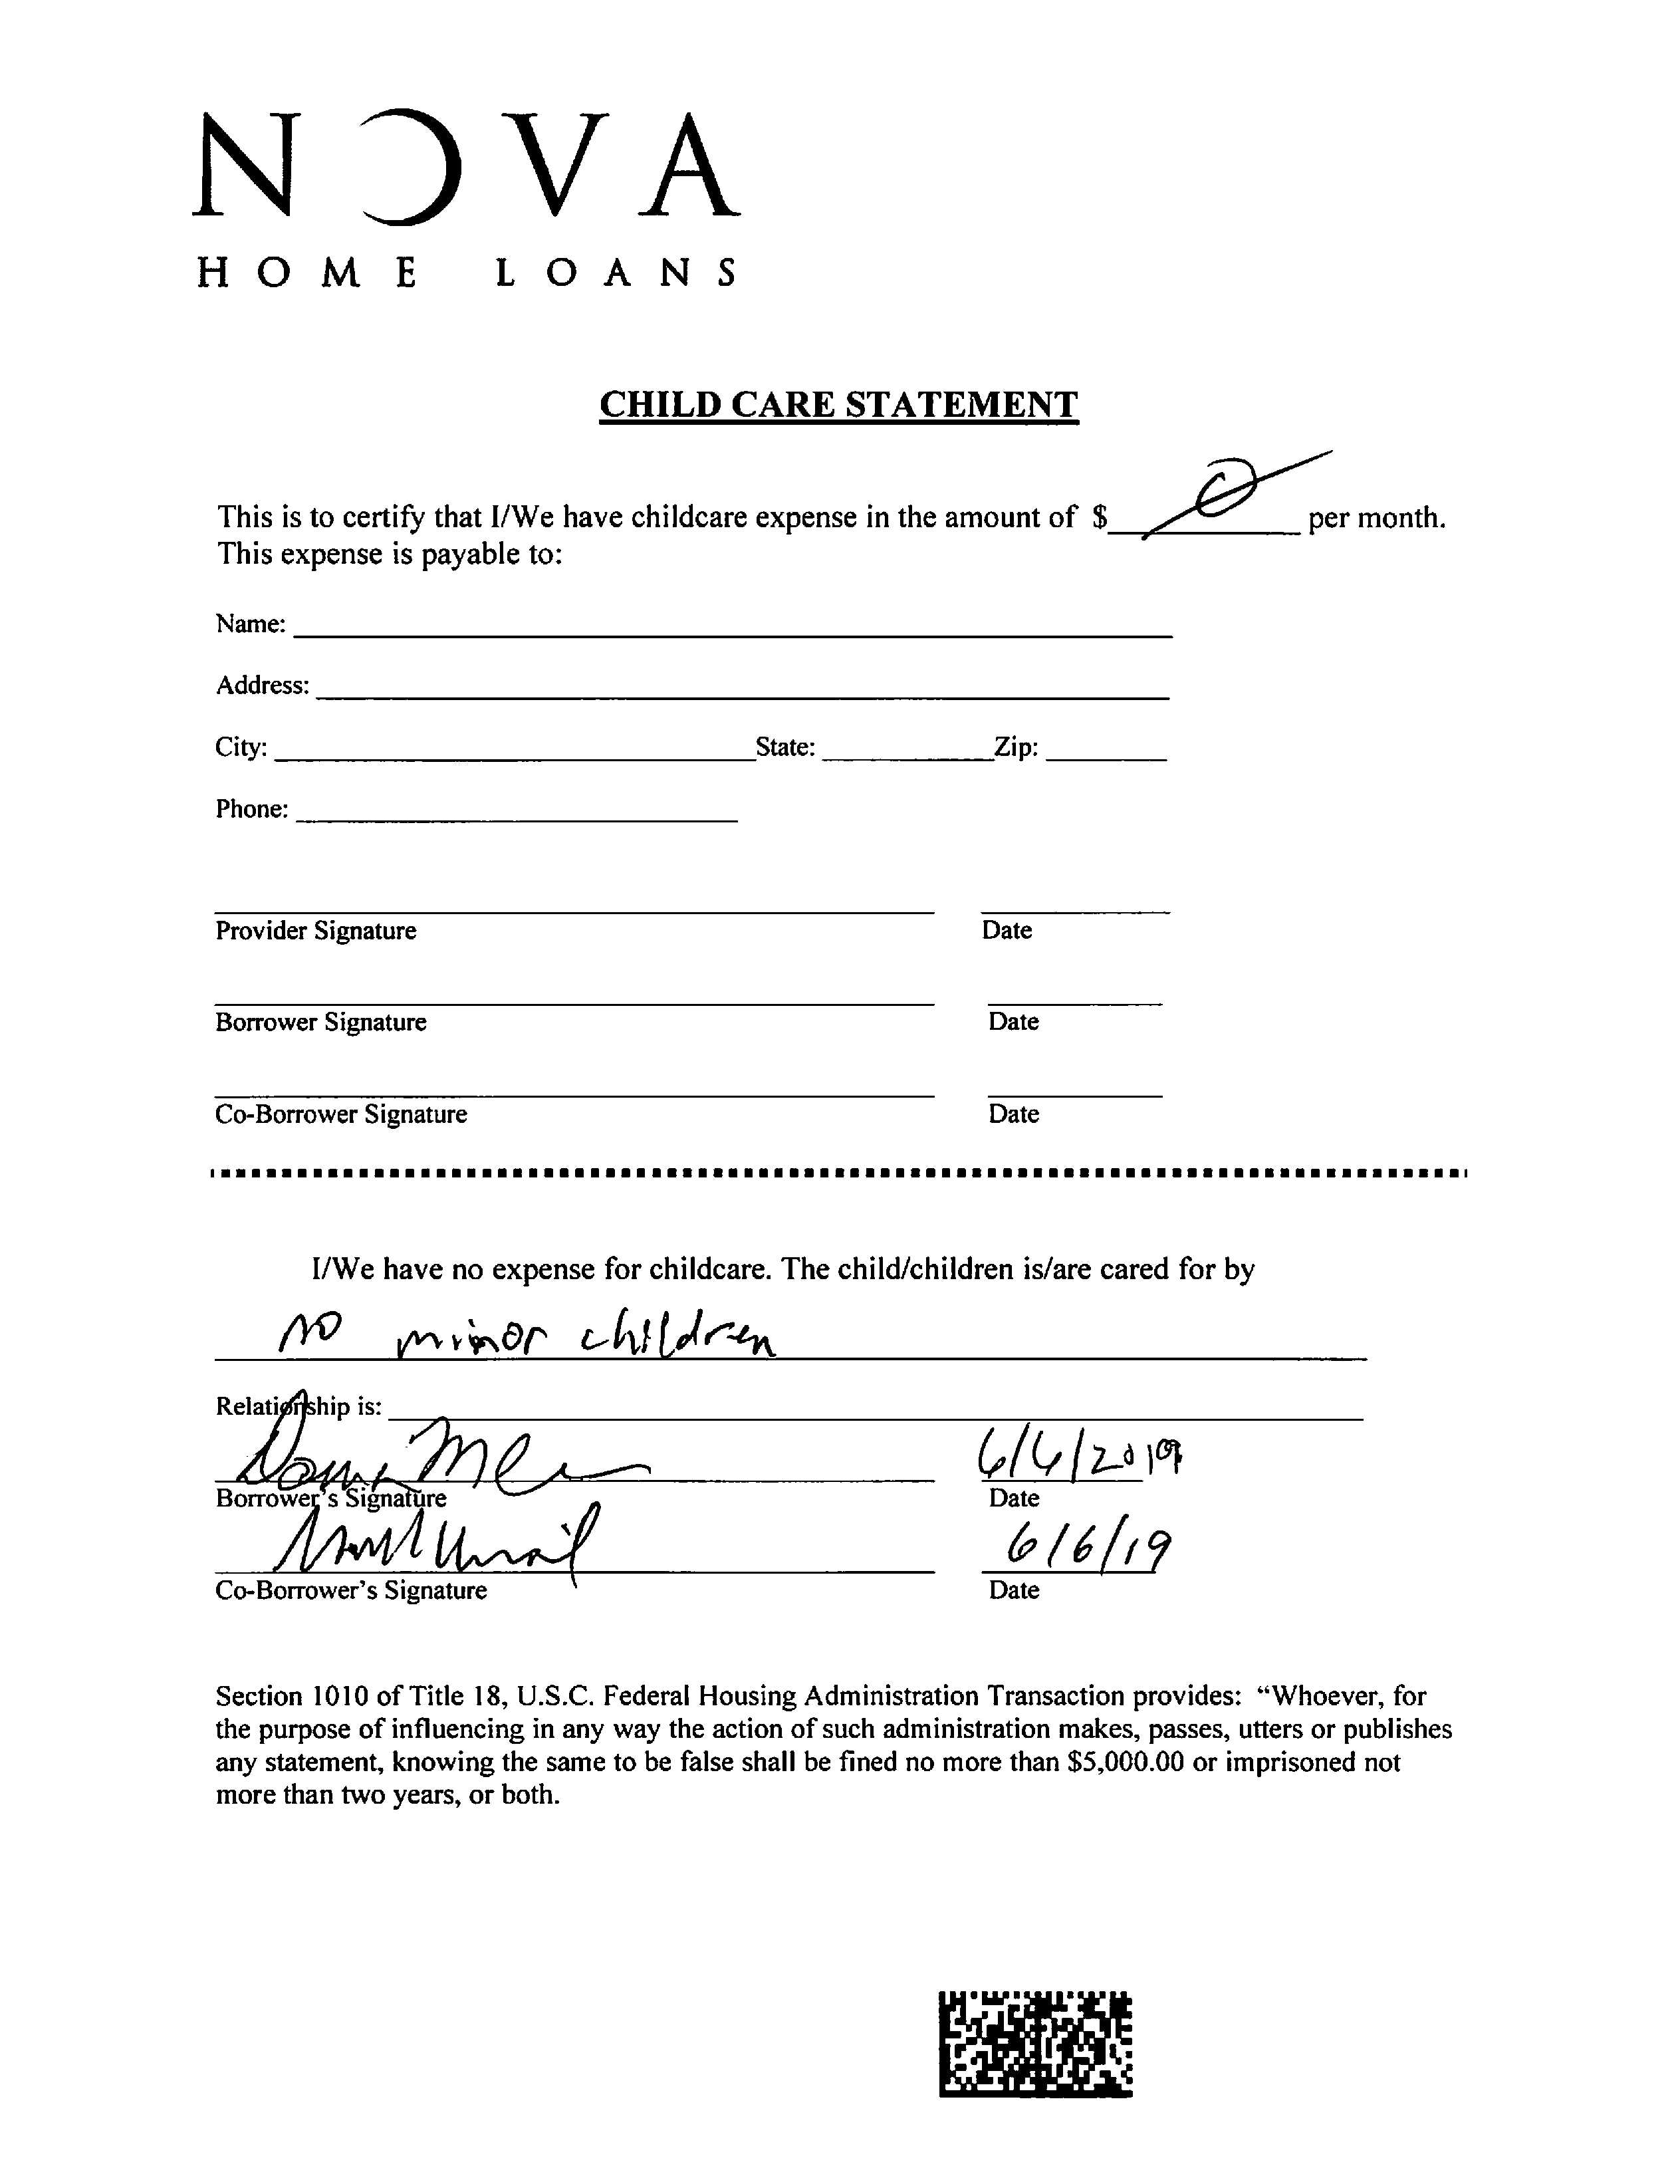 NOVA
HOME LOANS
CHILD CARE STATEMENT
This is to certify that I/We have childcare expense in the amount of $ 0 per month.
This expense is payable to:
Name:
Address:
City: State: Zip:
Phone:
Provider Signature Date
Borrower Signature Date
Co-Borrower Signature Date
I/We have no expense for childcare. The child/children is/are cared for by
no minor children
Relationship is:
6/6/2019
Borrower's Signature Date
6/6/19
Co-Borrower's Signature Date
Section 1010 of Title 18, U.S.C. Federal Housing Administration Transaction provides: “Whoever, for
the purpose of influencing in any way the action of such administration makes, passes, utters or publishes
any statement, knowing the same to be false shall be fined no more than $5,000.00 or imprisoned not
more than two years, or both.